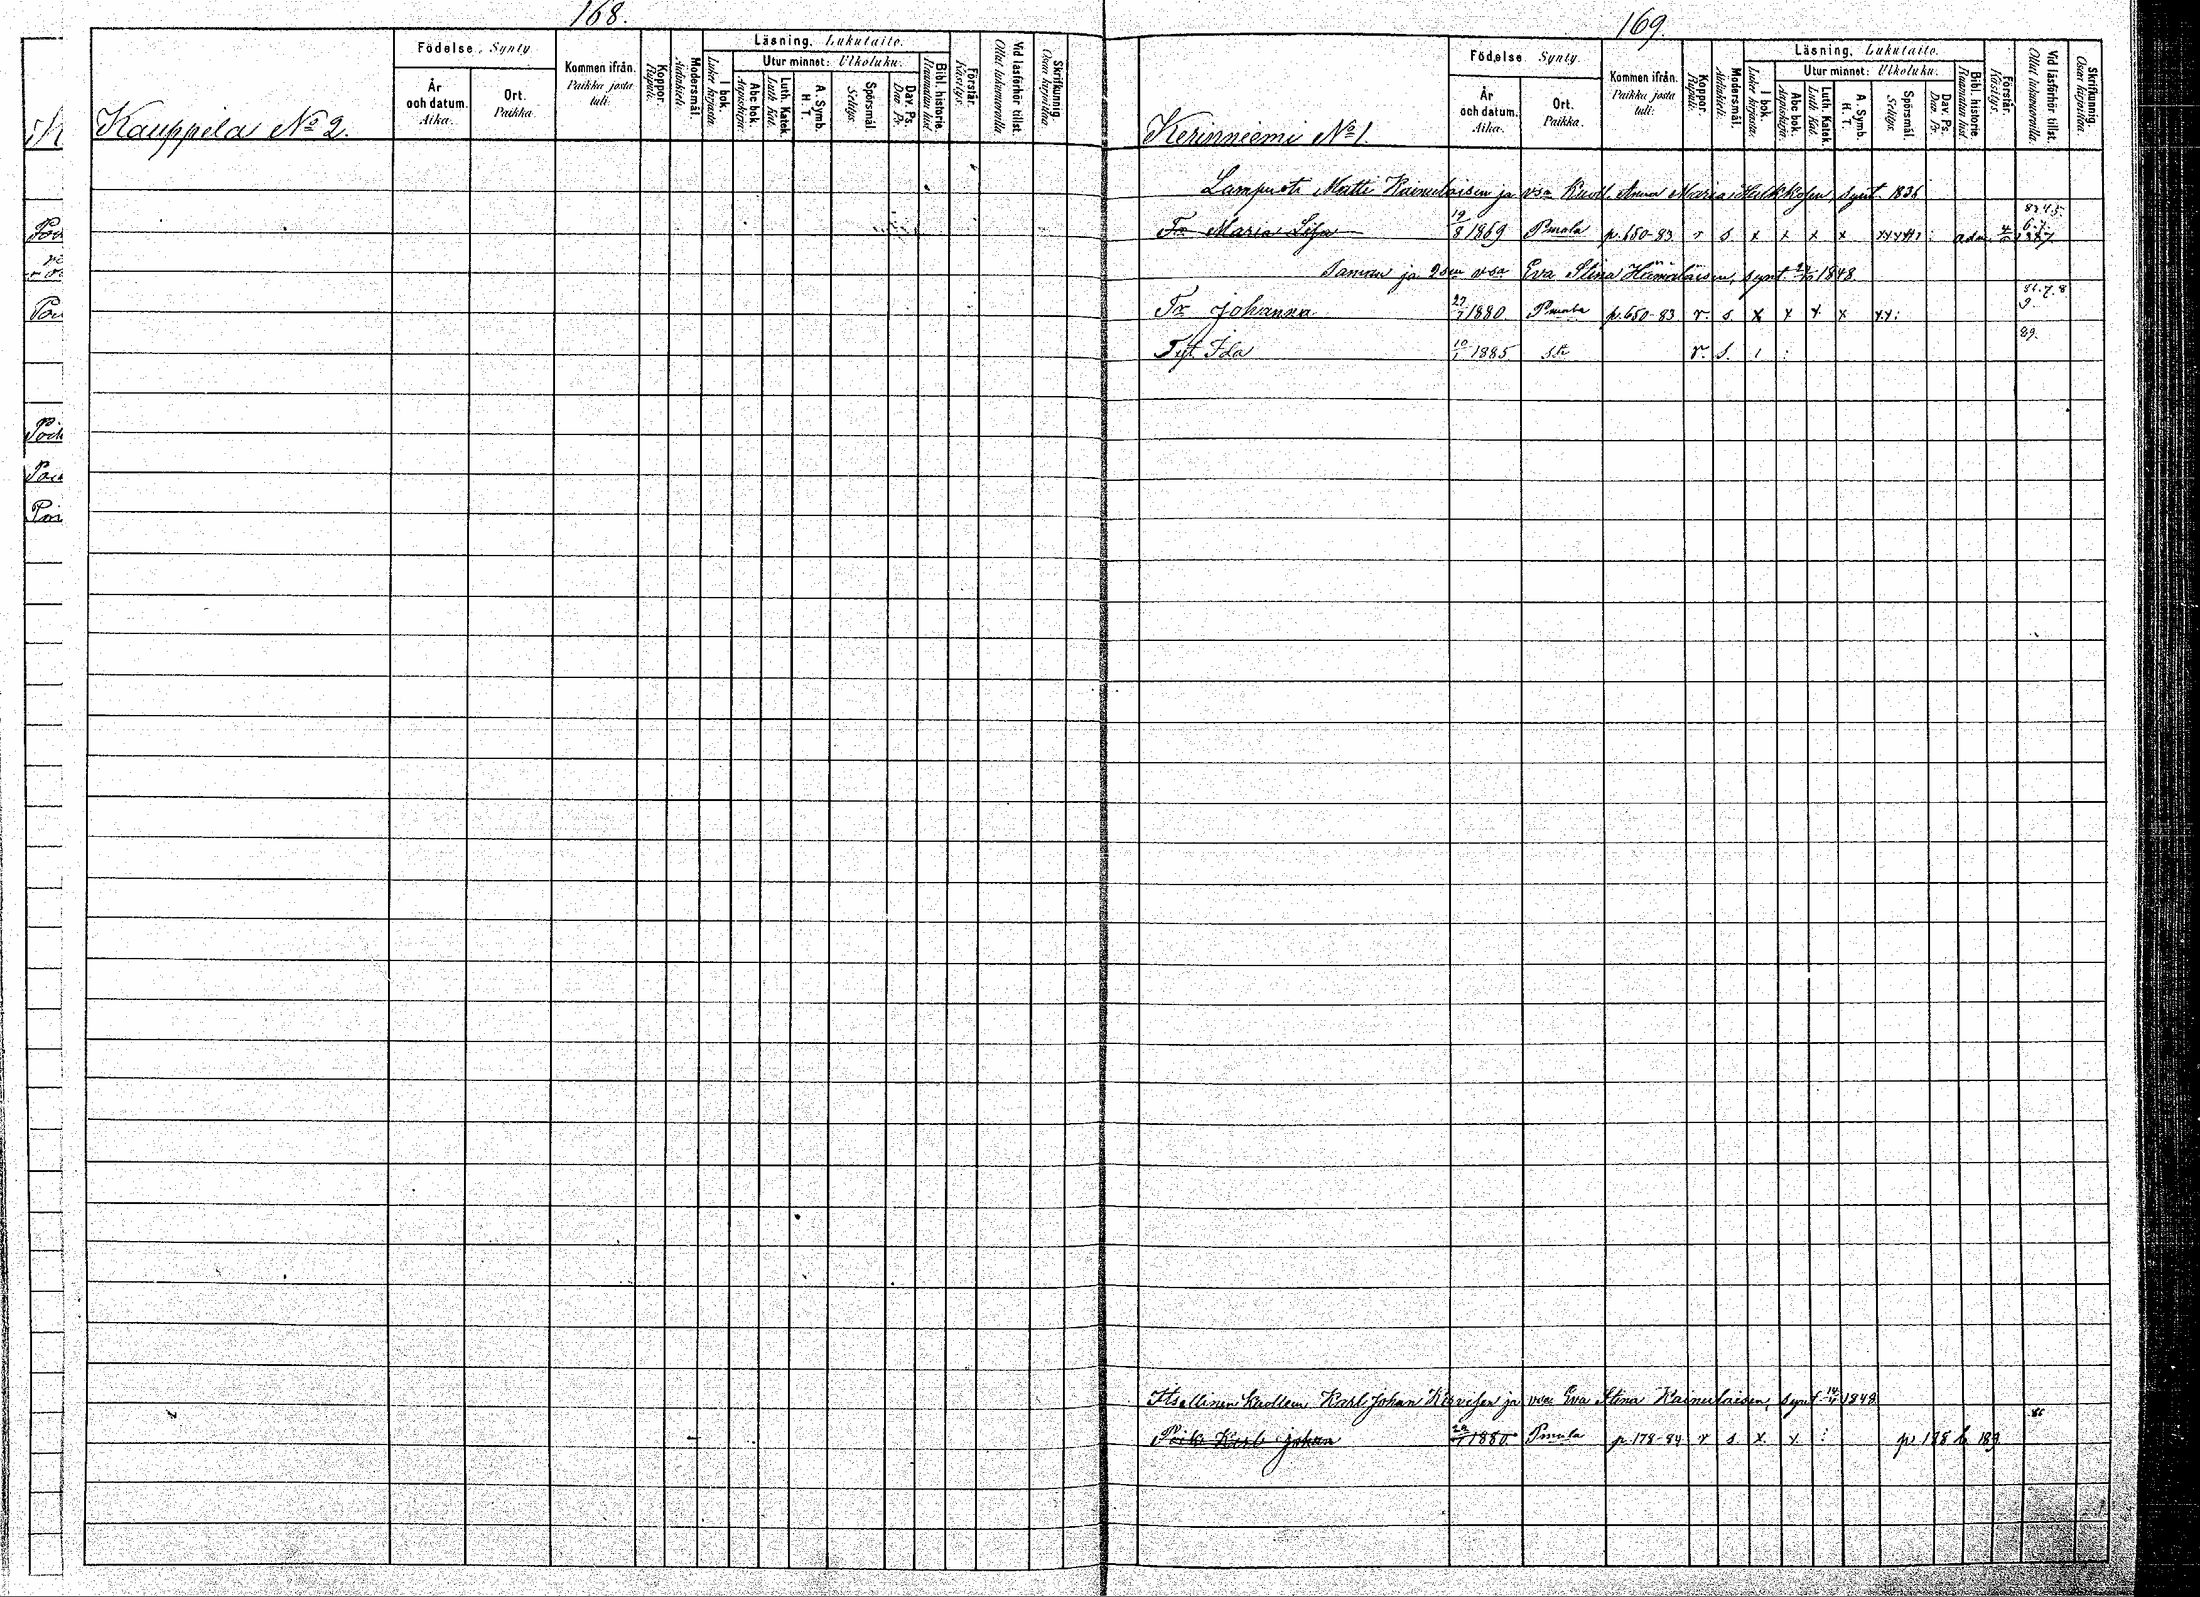 168.
Kauppila No 2.
Födelse. Synty.
År och datum. Aika.
Ort. Paikka.
Kommen ifrån. Paikka josta tuli.
Koppor. Rupuli.
Modersmål. Äidinkieli.
Läsning. Lukutaito.
I bok. Lukee kirjasta.
Utur minnet: Ulkoluku.
Abc bok. Aapiskirja.
Luth. Katek. Luth. Kat.
A. Symb. H. T.
Spörsmål. Selitys.
Dav. Ps. Dav. Ps.
Bibl. historie. Raamatun hist.
Förstår. Käsitys.
Vid läsförhör tillst. Ollut lukuvuorolla.
Skrifkunnig. Osaa kirjoittaa.
169.
Kerinniemi No 1.
Födelse. Synty.
År och datum. Aika.
Ort. Paikka.
Kommen ifrån. Paikka josta tuli.
Koppor. Rupuli.
Modersmål. Äidinkieli.
Läsning. Lukutaito.
I bok. Lukee kirjasta.
Utur minnet: Ulkoluku.
Abc bok. Aapiskirja.
Luth. Katek. Luth. Kat.
A. Symb. H. T.
Spörsmål. Selitys.
Dav. Ps. Dav. Ps.
Bibl. historie. Raamatun hist.
Förstår. Käsitys.
Vid läsförhör tillst. Ollut lukuvuorolla.
Skrifkunnig. Osaa kirjoittaa.
Matti Kainulaisen ja vsa Kuoll. Anna Maria synt. 1836
Tr Maria Lisa 19/8 1869 Pmala p. 650-83 r s x x x x
Saman ja 2sen vsa Eva Stina Hämäläisen, synt 1848
Tr Johanna 1880 Pmala p. 650-83 r. s. x x x x xx:
Tyt. Ida 10/1 1885 s.tr r. s. 89.
Itsellinen kuolleen Karl Johan ja vsa Eva Stina Kainulaisen, synt 1848
Poik Karl Johan 1880 Pmala p. 178-84 r s x x : 86